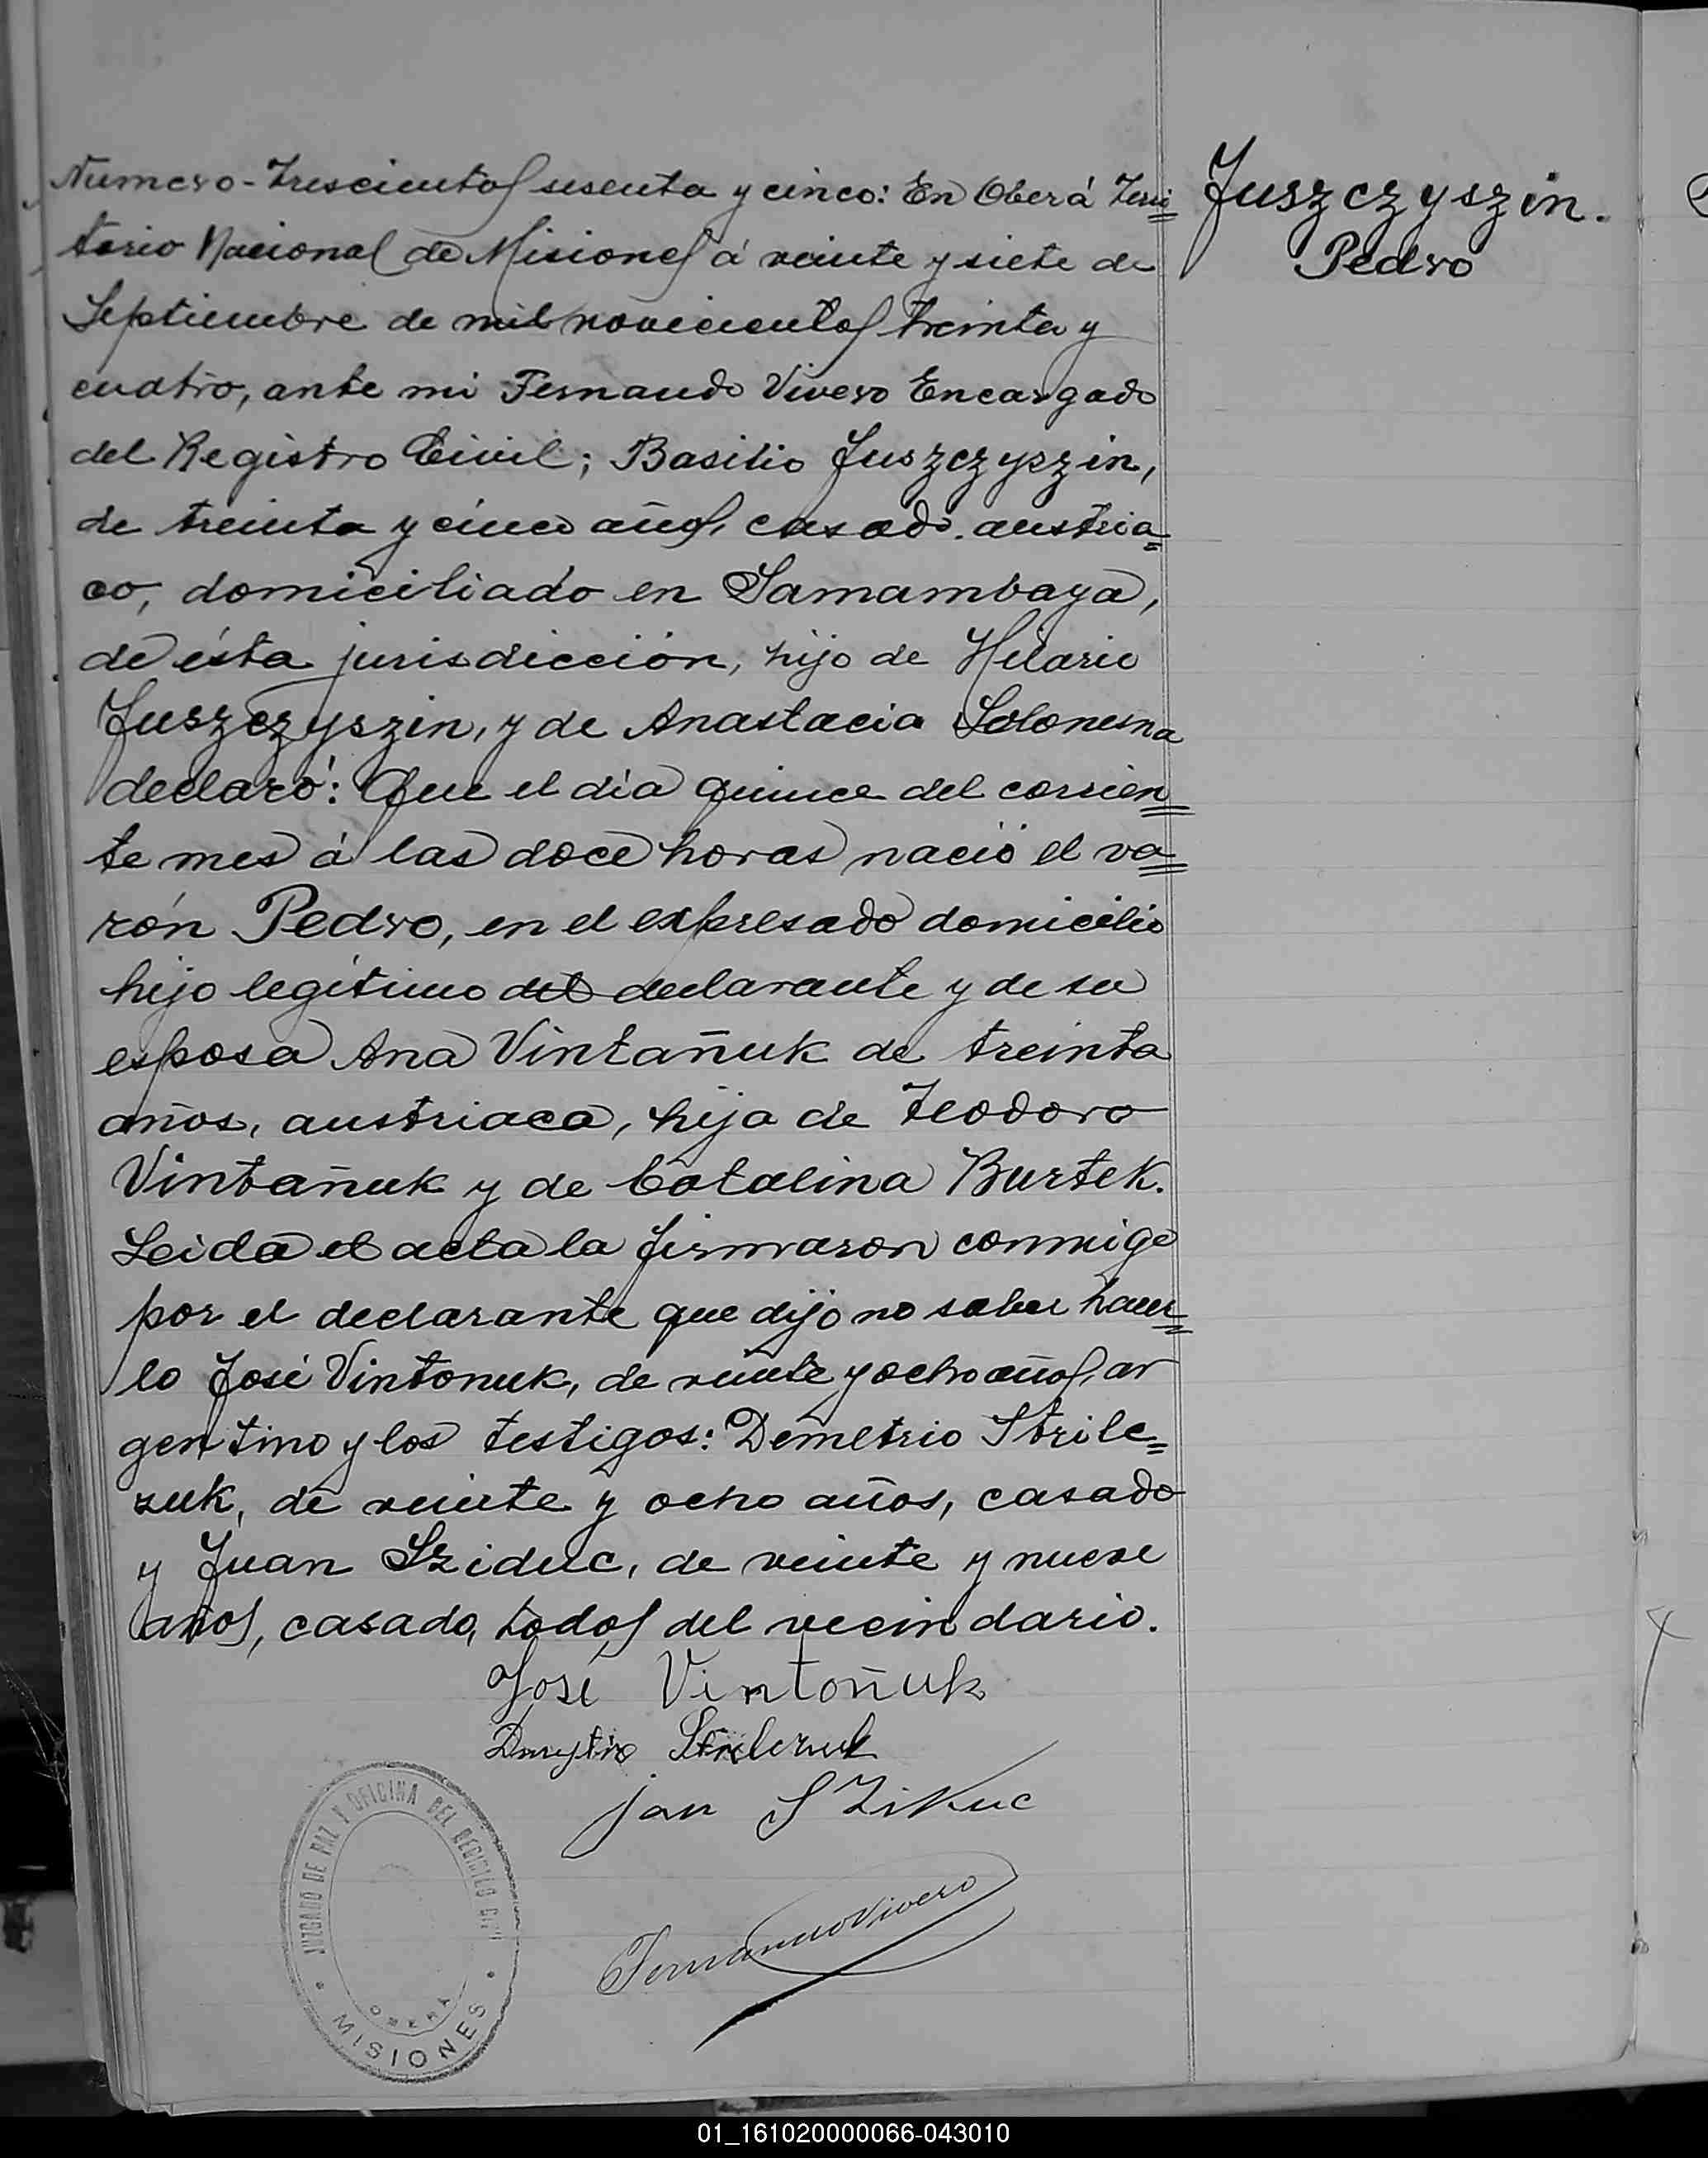 Numero-Trescientos sesenta y cinco: En Oberá Terri=
torio Nacional de Misiones á veinte y siete de
Septiembre de mil novecientos treinta y
cuatro, ante mi Fernando Vivero Encargado
del Registro Civil; Basilio Juszczyszin,
de treinta y cinco años, casado, austria=
co, domiciliado en Samambaya,
de ésta jurisdicción, hijo de Hilario
Juszczyszin, y de Anastacia
declaró: Que el día quince del corrien=
te mes á las doce horas nació el va=
rón Pedro, en el expresado domicilio
hijo legítimo del declarante y de su
esposa Ana Vintañuk de treinta
años, austriaca, hija de Teodoro
Vintañuk y de Catalina Burtek.
Leida el acta la firmaron conmigo
por el declarante que dijo no saber hacer=
lo José Vintonuk, de veinte y ocho años, ar
gentino y los testigos: Demetrio Strilc=
zuk, de veinte y ocho años, casado
y Juan Sziduc, de veinte y nueve
años, casado, todos del vecindario.
José Vintoñuk
Dmytro
Jan SZiKuc
Fernando Vivero
JUZGADO DE PAZ Y OFICINA DEL REGISTRO CIVIL
OBERÁ
MISIONES
Juszczyszin.
Pedro
01_161020000066-043010